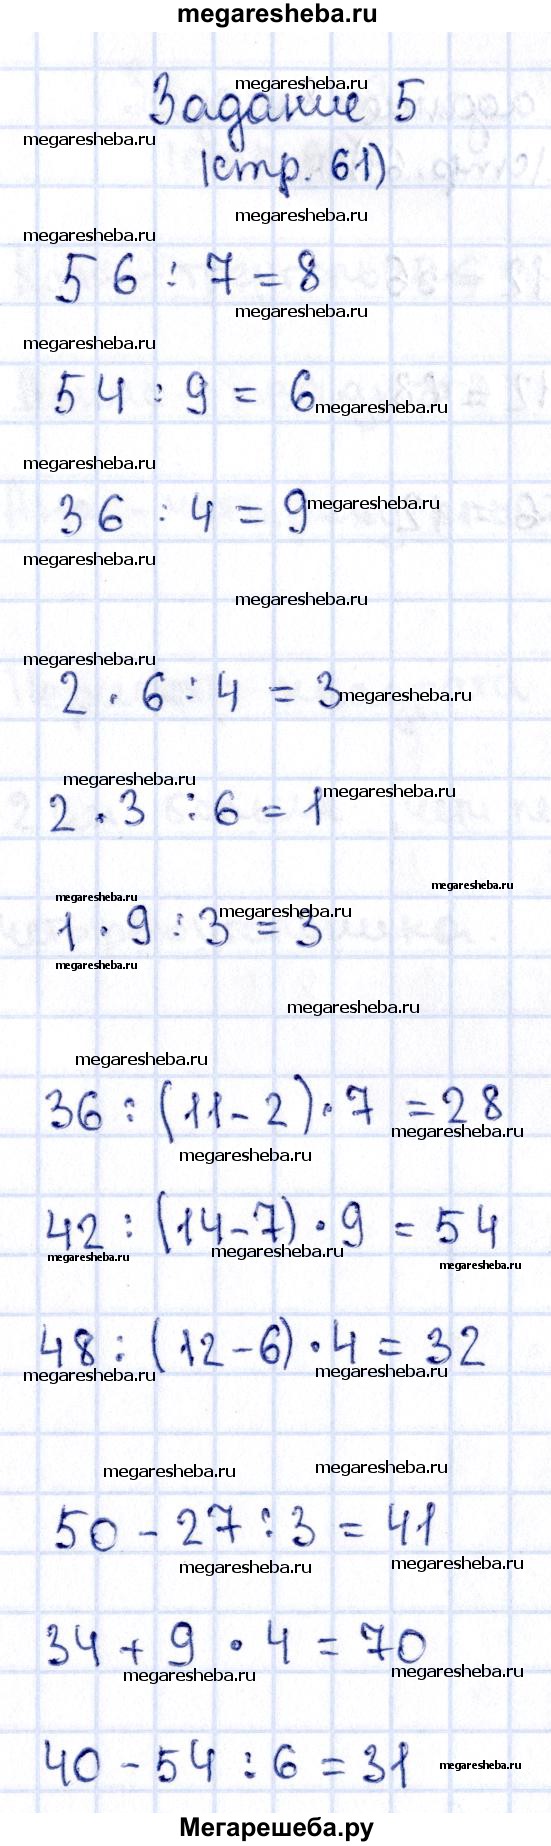 megaresheba.ru
megaresheba.ru
Задание 5
megaresheba.ru megaresheba.ru
(стр. 61)
megaresheba.ru
megaresheba.ru
56 : 7 = 8
megaresheba.ru
megaresheba.ru
54 : 9 = 6
megaresheba.ru
megaresheba.ru
36 : 4 = 9
megaresheba.ru
megaresheba.ru
megaresheba.ru
megaresheba.ru
2 · 6 : 4 = 3
megaresheba.ru
megaresheba.ru
2 · 3 : 6 = 1
megaresheba.ru
megaresheba.ru
megaresheba.ru
1 · 9 : 3 = 3
megaresheba.ru
megaresheba.ru
megaresheba.ru
megaresheba.ru
36 : (11 - 2) · 7 = 28
megaresheba.ru
megaresheba.ru
42 : (14 - 7) · 9 = 54
megaresheba.ru megaresheba.ru
megaresheba.ru
48 : (12 - 6) · 4 = 32
megaresheba.ru megaresheba.ru
megaresheba.ru megaresheba.ru
50 - 27 : 3 = 41
megaresheba.ru megaresheba.ru
34 + 9 · 4 = 70
megaresheba.ru megaresheba.ru
40 - 54 : 6 = 31
megaresheba.ru
Мегарешеба.ру